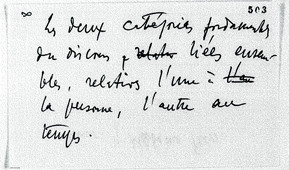 ∞ 503
Les deux catégories fondamentales
du discours, relatio liées ensem-
bles, relatives l'une à l'au
la personne, l'autre au
temps.